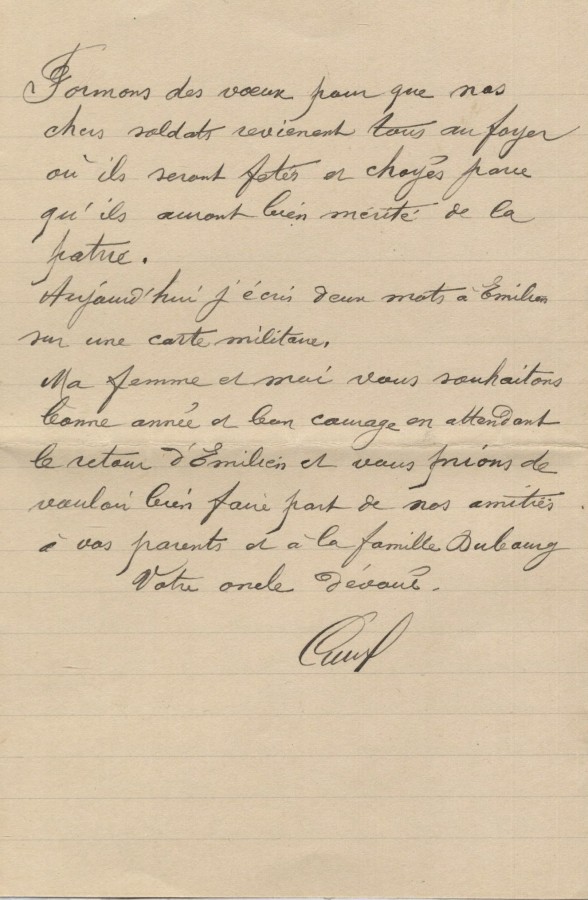 Formons des vœux pour que nos
chers soldats revienent tous au foyer
où ils seront fetés et choyés parce
qu'ils auront bien mérité de la
patrie.
Aujourd'hui j'écris deux mots à Emilien
sur une carte militaire.
Ma femme et moi vous souhaitons
bonne année et bon courage en attendant
le retour d'Emilien et vous prions de
vouloir bien faire part de nos amitiés
à vos parents et à la famille Dubourg
Votre oncle dévoué.